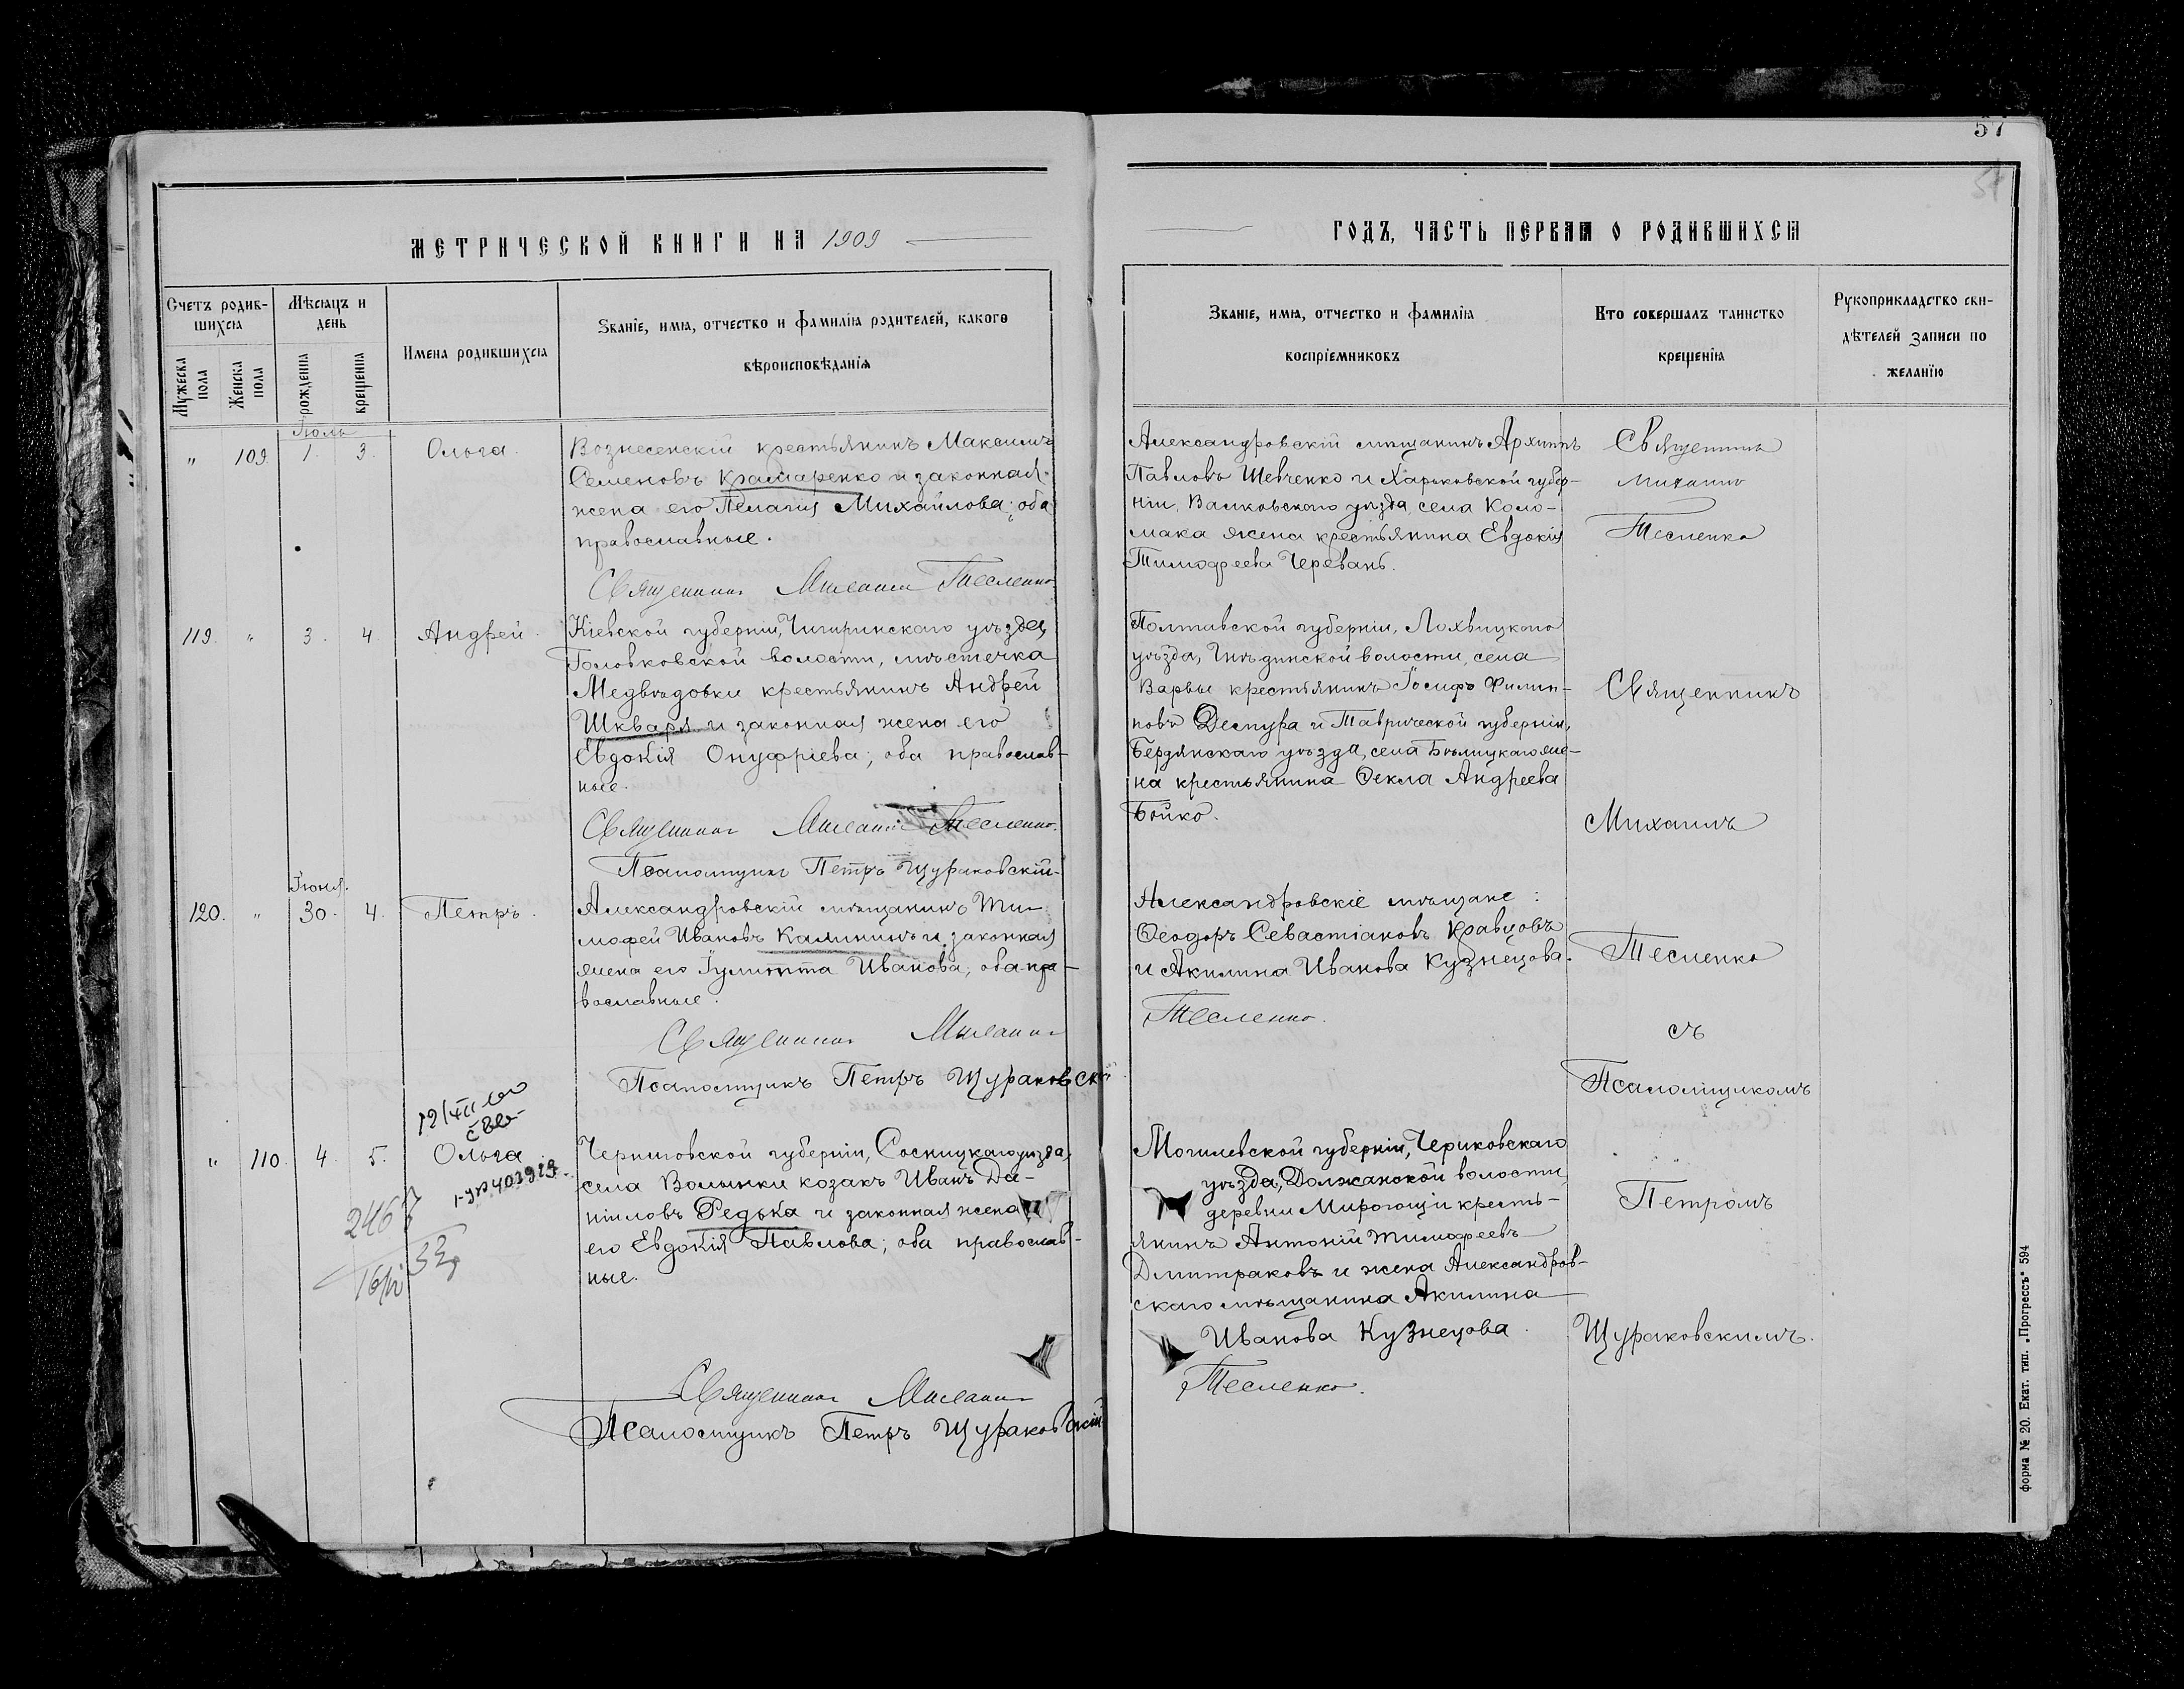 57
МЕТРИЧЕСКОЙ КНИГИ НА 1909
ГОДЪ, ЧАСТЬ ПЕРВАЯ О РОДИВШИХСЯ
Счетъ родив-
шихся
Мужеска пола
Женска пола
Мѣсяцъ и
день
рожденія
крещенія
Имена родившихся
Званіе, имя, отчество и фамилія родителей, какого
вѣроисповѣданія
Званіе, имя, отчество и фамилія
воспріемниковъ
Кто совершалъ таинство
крещенія
Рукоприкладство сви-
дѣтелей записи по
желанію
Іюль
„ 109. 1. 3. Ольга.
Вознесенскій крестьянинъ Максимъ
Семеновъ Крамаренко и законная
жена его Пелагія Михайлова; оба
православные.
Священникъ Михаилъ Тесленко
Александровскій мѣщанинъ Архиппъ
Павловъ Шевченко и Харьковской губер-
ніи, Валковскаго уѣзда, села Коло-
мака жена крестьянина Евдокія
Тимофеева Черевань.
Священникъ
Михаилъ
Тесленко
119. „ 3. 4. Андрей.
Кіевской губерніи, Чигиринскаго уѣзда,
Головковской волости, мѣстечка
Медвѣдовки крестьянинъ Андрей
Шкваря и законная жена его
Евдокія Онуфріева; оба православ-
ные.
Священникъ Михаилъ Тесленко.
Псаломщикъ Петръ Щураковскій
Полтавской губерніи, Лохвицкаго
уѣзда, Гнѣдинской волости, села
Варвы крестьянинъ Іосифъ Филип-
повъ Деспура и Таврической губерніи,
Бердянскаго уѣзда, села Бѣлицкаго же-
на крестьянина Ѳекла Андреева
Бойко.
Священникъ
Михаилъ
Іюня.
120. „ 30. 4. Петръ.
Александровскій мѣщанинъ Ти-
мофей Ивановъ Калининъ и законная
жена его Іулитта Иванова; оба пра-
вославные.
Священникъ Михаилъ
Псаломщикъ Петръ Щураковскій
Александровскіе мѣщане:
Ѳеодоръ Севастіановъ Кравцовъ
и Акилина Иванова Кузнецова.
Тесленко.
Тесленко
съ
Псаломщикомъ
„ 110. 4. 5. Ольга
2467
Черниговской губерніи, Сосницкаго уѣзда,
села Волынки козакъ Иванъ Да-
ніиловъ Редька и законная жена
его Евдокія Павлова; оба православ-
ные.
Священникъ Михаилъ
Псаломщикъ Петръ Щураковскій
Могилевской губерніи, Чериковскаго
уѣзда, Должанской волости,
деревни Мирогощи кресть-
янинъ Антоній Тимофеевъ
Дмитраковъ и жена Александров-
скаго мѣщанина Акилина
Иванова Кузнецова.
Тесленко.
Петромъ
Щураковскимъ.
форма № 20. Екат. тип. „Прогрессъ“ 594